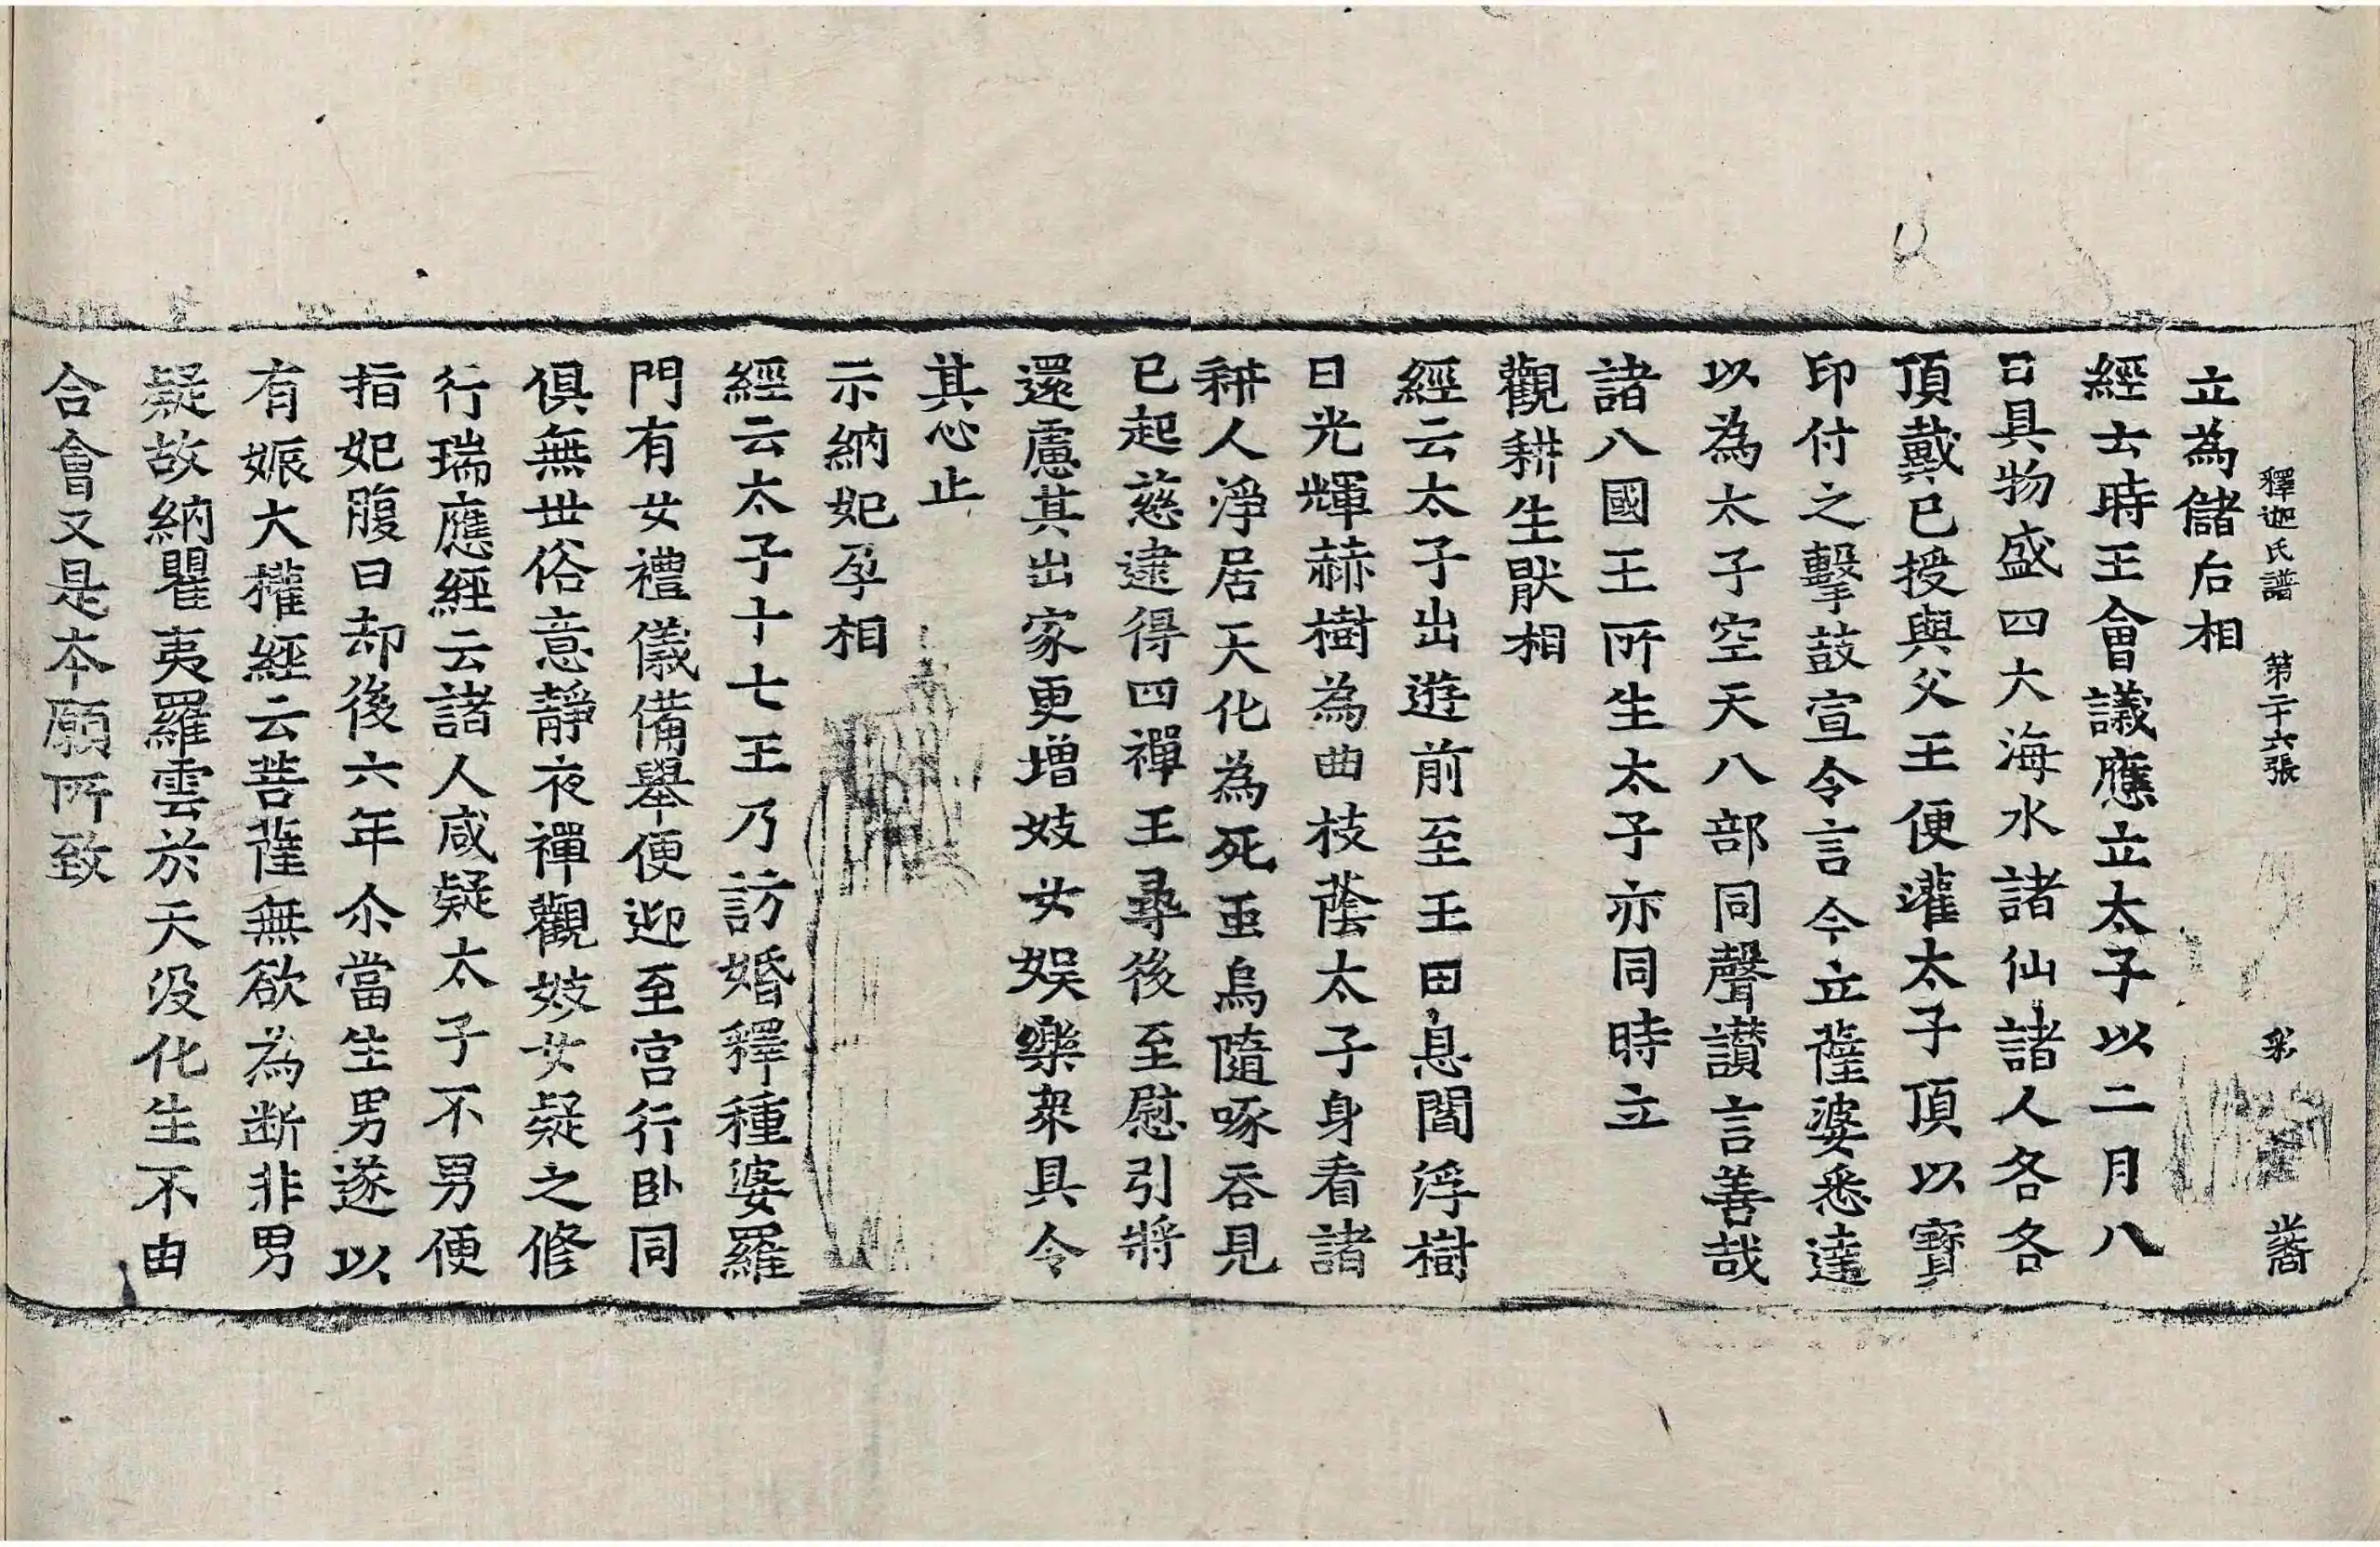 釋迦氏譜 第二十六張
立為儲后相
經云時王會議應立太子以二月八
日具物盛四大海水諸仙諸人各各
頂戴已授與父王便灌太子頂以寶
印付之擊鼓宣令言今立薩婆悉達
以為太子空天八部同聲讃言善哉
諸八國王所生太子亦同時立
觀耕生猒相
經云太子出遊前至王田息閻浮樹
日光輝赫樹為曲枝蔭太子身看諸
耕人淨居天化為死䖝烏隨啄吞見
已起慈逮得四禪王尋後至慰引將
還慮其出家更增妓女娛樂衆具令
其心止
示納妃孕相
經云太子十七王乃訪婚釋種婆羅
門有女禮儀備舉便迎至宮行卧同
俱無世俗意靜夜禪觀妓女疑之修
行瑞應經云諸人咸疑太子不男便
指妃腹曰却後六年尒當生男遂以
有娠大權經云菩薩無欲為断非男
疑故納瞿夷羅雲於天没化生不由
合會又是本願所致